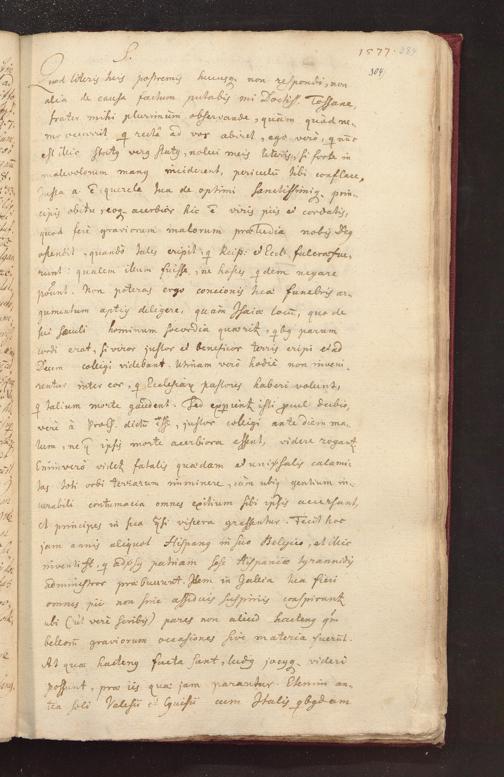 S. 1577. 384
304
Quod literis tuis postremis hucusq; non respondi, non
alia de causa factum putabis mi Doctiss. Tossane,
frater mihi plurimum observande, quàm quod ne-
mo occurrit q̃ rectà ad vos abiret, ego verò, q̃ nũc
est illic status, nolui meis literis, si forte in
malevolorum manus incident, periculũ tibi conflare.
Justa a. ẽ querela tua de optimi Sanctissimiq; prin-
cipis obitu, eoq; acerbior hic ẽ viris piis et cordatis,
quod ferè graviorum malorum præludia nobis Deq
ostendit, quando tales eripit, q̃ Reip: et Eccl. fulcra fue-
runt: qualem illum fuisse, ne hostes q̃dem negare
põunt. Non poteras ergo concionis tuæ funebris ar-
gumentum aptius deligere, quàm Isaiæ locũ, quo de
sui sæculi hominum socordia quæritr, qbq parum
cordi erat, si viros justos et beneficos terris eripi et ad
Deum colligi videbant. Utinam verò hodiè non inveni-
rentur inter eos, q̃ Ecclesiarum pastores haberi volunt,
q̃ talium morte gaudent. Sed experientr isti procul dubio,
verè à Proph. dictũ esse, justos colligi ante diem ma-
lum, ne q̃ ipsis morte acerbiora essent, videre cogantr.
Enimverò videtr fatalis quædam et universalis calami-
tas toti orbi terrarum imminere, cùm ubiq; gentium in-
curabili contumacia omnes exitium sibi ipsis accersant,
et principes in sua ipsi viscera grassentur. Fecit hoc
jam annis aliquot Hispanq in suo Belgico, et illic
inventi st, q̃ adversq patriam sese Hispanicæ tyrannidis
administros præbuerunt. Idem in Gallia tua fieri
omnes pii non sine assiduis suspiriis conspiciunt,
ubi (uti verè scribis) pares non aliud hacteng q̃m
bellorũ graviorum occasiones sive materia fuerũt.
At quæ hacteng facta sunt, ludq jocusq; videri
possunt, præ iis quæ jam parantur. Etenim an-
tea soli Valesii et Guisii cum Italis qbqdam